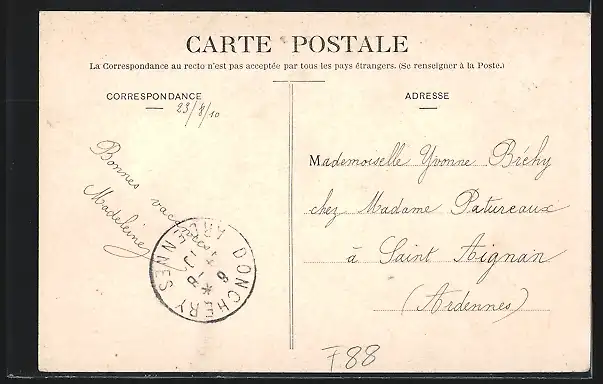 CARTE POSTALE
La Correspondance au recto n'est pas acceptée par tous les pays étrangers. (Se renseigner à la Poste.)
CORRESPONDANCE
23/8/10
Bonnes vacances
Madeleine
ADRESSE
Mademoiselle Yvonne Bréhy
chez Madame Patureaux
à Saint Aignan
(Ardennes)
DONCHERY
ARDENNES
F88